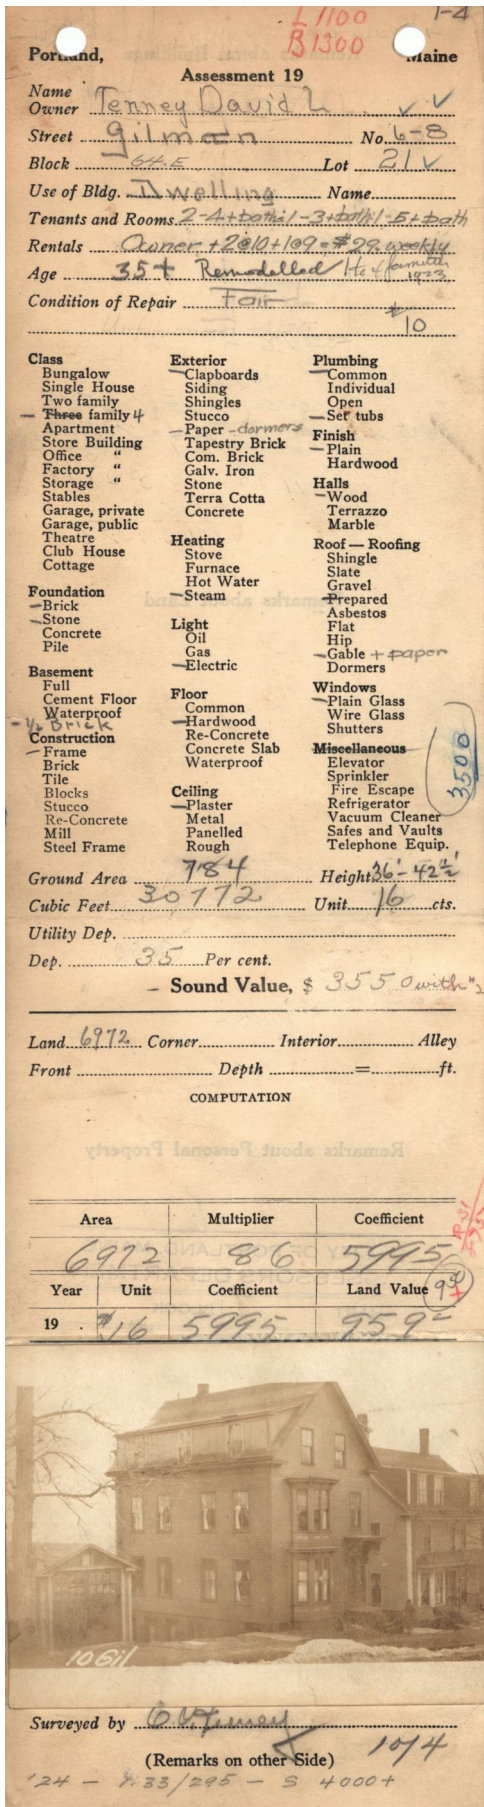 L 1100
B 1300
1-4
Portland, Maine
Assessment 19
Name
Owner Tenney David L ✓ ✓
Street Gilman No. 6-8
Block 64-E Lot 21 ✓
Use of Bldg. Dwelling Name
Tenants and Rooms 2-4+bath 1-3+bath 1-5+bath
Rentals Owner + 2@10 + 1@9 = $29. weekly
Age 35+ Remodelled 1 to 4 family 1923
Condition of Repair Fair
$10
Class
Bungalow
Single House
Two family
Three family 4
Apartment
Store Building
Office "
Factory "
Storage "
Stables
Garage, private
Garage, public
Theatre
Club House
Cottage
Foundation
Brick
Stone
Concrete
Pile
Basement
Full
Cement Floor
Waterproof
- ½ Brick
Construction
Frame
Brick
Tile
Blocks
Stucco
Re-Concrete
Mill
Steel Frame
Exterior
Clapboards
Siding
Shingles
Stucco
Paper - dormers
Tapestry Brick
Com. Brick
Galv. Iron
Stone
Terra Cotta
Concrete
Heating
Stove
Furnace
Hot Water
Steam
Light
Oil
Gas
Electric
Floor
Common
Hardwood
Re-Concrete
Concrete Slab
Waterproof
Ceiling
Plaster
Metal
Panelled
Rough
Plumbing
Common
Individual
Open
Set tubs
Finish
Plain
Hardwood
Halls
Wood
Terrazzo
Marble
Roof — Roofing
Shingle
Slate
Gravel
Prepared
Asbestos
Flat
Hip
Gable + paper
Dormers
Windows
Plain Glass
Wire Glass
Shutters
Miscellaneous
Elevator
Sprinkler
Fire Escape
Refrigerator
Vacuum Cleaner
Safes and Vaults
Telephone Equip.
3500
Ground Area 784 Height 36'-42½'
Cubic Feet 30772 Unit 16 cts.
Utility Dep.
Dep. 35 Per cent.
- Sound Value, $ 3550 with "2
Land 6972 Corner Interior Alley
Front Depth = ft.
COMPUTATION
Area Multiplier Coefficient
6972 86 5995
Year Unit Coefficient Land Value 950
19 . $16 5995 959-
10 Gil
Surveyed by
(Remarks on other Side) 10/4
'24 - 1133/295 - S 4000+